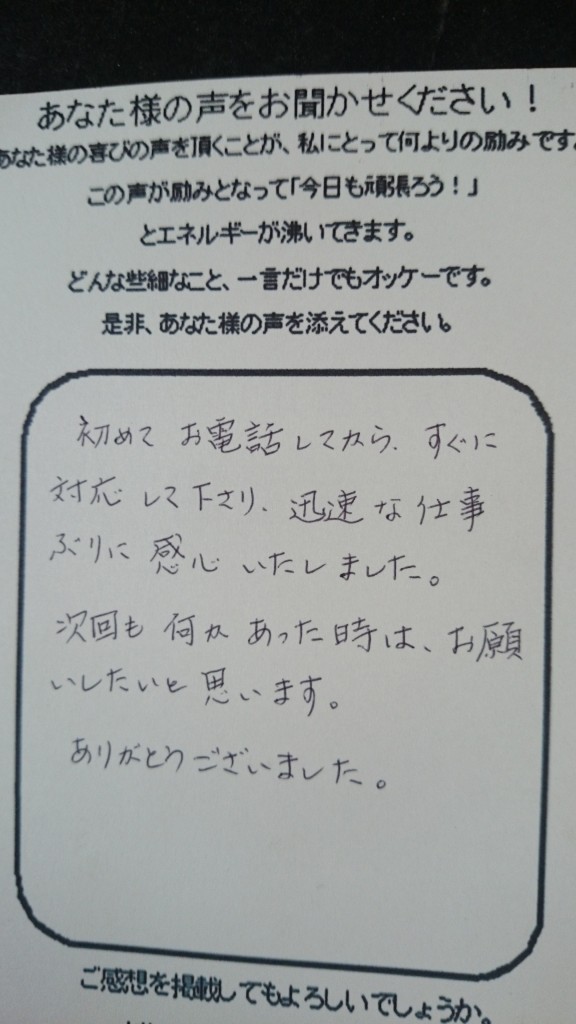 あなた様の声をお聞かせください！
あなた様の喜びの声を頂くことが、私にとって何よりの励みです。
この声が励みとなって「今日も頑張ろう！」
とエネルギーが沸いてきます。
どんな些細なこと、一言だけでもオッケーです。
是非、あなた様の声を添えてください。
初めて お電話してから、すぐに
対応して下さり、迅速な仕事
ぶりに感心いたしました。
次回も何かあった時は、お願
いしたいと思います。
ありがとうございました。
ご感想を掲載してもよろしいでしょうか。